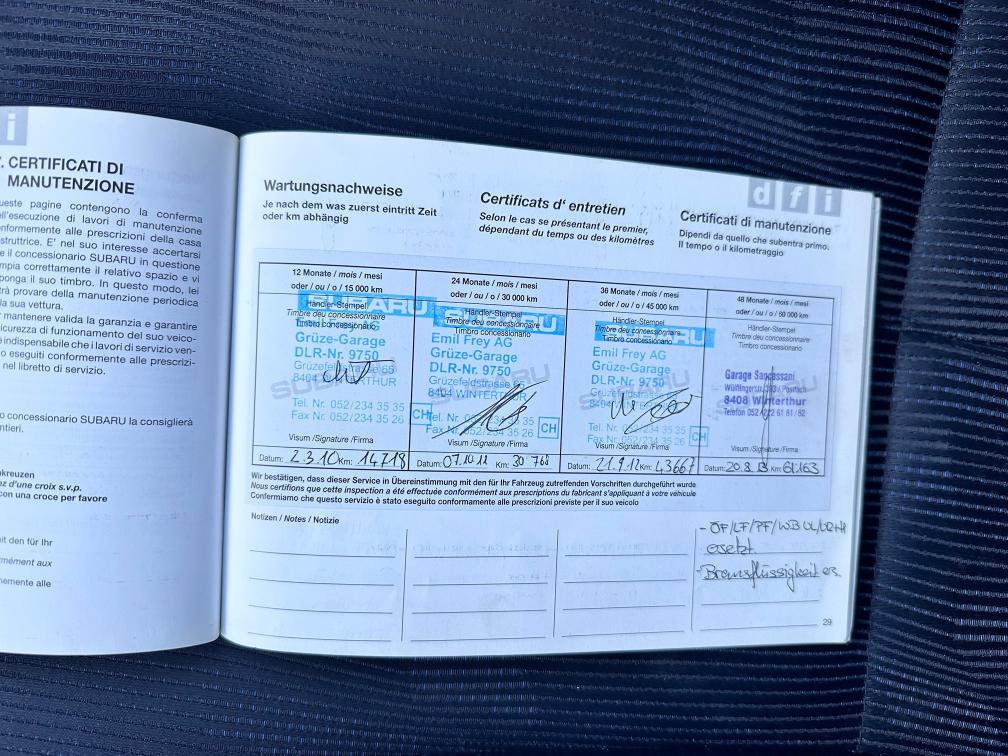 i
CERTIFICATI DI
MANUTENZIONE
ueste pagine contengono la conferma
ll'esecuzione di lavori di manutenzione
nformemente alle prescrizioni della casa
struttrice. E' nel suo interesse accertarsi
e il concessionario SUBARU in questione
mpia correttamente il relativo spazio e vi
ponga il suo timbro. In questo modo, lei
trà provare della manutenzione periodica
la sua vettura.
mantenere valida la garanzia e garantire
icurezza di funzionamento del suo veico-
è indispensabile che i lavori di servizio ven-
o eseguiti conformemente alle prescrizi-
nel libretto di servizio.
o concessionario SUBARU la consiglierà
ntieri.
kreuzen
ez d'une croix s.v.p.
con una croce per favore
it den für Ihr
rmément aux
nemente alle
d f i
Wartungsnachweise
Je nach dem was zuerst eintritt Zeit
oder km abhängig
Certificats d' entretien
Selon le cas se présentant le premier,
dépendant du temps ou des kilomètres
Certificati di manutenzione
Dipendi da quello che subentra primo.
Il tempo o il kilometraggio
12 Monate / mois / mesi
oder / ou / o / 15 000 km
SUBARU
Händler-Stempel
Timbre deu concessionnaire
Timbro concessionario
Grüze-Garage
DLR-Nr. 9750
Grüzefeldstrasse 65
8404 WINTERTHUR
Tel. Nr. 052/234 35 35
Fax Nr. 052/234 35 26
CH
Visum /Signature /Firma
Datum: 2.3.10 Km: 14718
24 Monate / mois / mesi
oder / ou / o / 30 000 km
SUBARU
Händler-Stempel
Timbre deu concessionnaire
Timbro concessionario
Emil Frey AG
Grüze-Garage
DLR-Nr. 9750
Grüzefeldstrasse 65
8404 WINTERTHUR
Tel. Nr. 052/234 35 35
Fax Nr. 052/234 35 26
CH
Visum /Signature /Firma
Datum: 07.10.11 Km: 30 768
36 Monate / mois / mesi
oder / ou / o / 45 000 km
Händler-Stempel
Timbre deu concessionnaire
Timbro concessionario
Emil Frey AG
Grüze-Garage
DLR-Nr. 9750
Grüzefeldstrasse 65
8404 WINTERTHUR
Tel. Nr. 052/234 35 35
Fax Nr. 052/234 35 26
CH
Visum /Signature /Firma
Datum: 21.9.12 Km: 43667
48 Monate / mois / mesi
oder / ou / o / 60 000 km
Händler-Stempel
Timbre deu concessionnaire
Timbro concessionario
Garage
8408 Winterthur
Telefon 052/222 61 61 / 62
Visum /Signature /Firma
Datum: 20.8.13 Km: 61.163
Wir bestätigen, dass dieser Service in Übereinstimmung mit den für Ihr Fahrzeug zutreffenden Vorschriften durchgeführt wurde
Nous certifions que cette inspection a été effectuée conformément aux prescriptions du fabricant s'appliquant à votre véhicule
Confermiamo che questo servizio è stato eseguito conformemente alle prescrizioni previste per il suo veicolo
Notizen / Notes / Notizie
- ÖF/LF/PF/WB
esetzt
- Bremsflüssigkeit es
29